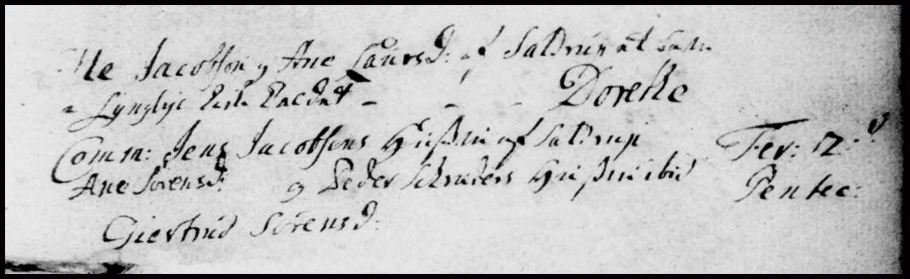 Ole Jacobsen og Ane Laursd: af Saltrup et barn
Lyngbye Kirke Kaldet Dorethe
Comm: Jens Jacobsens Hustru af Saltrup Fer: 2
Ane Sørensd: og Peder Schrøders Hustru ibid Pentec:
Giertrud Sørensd: